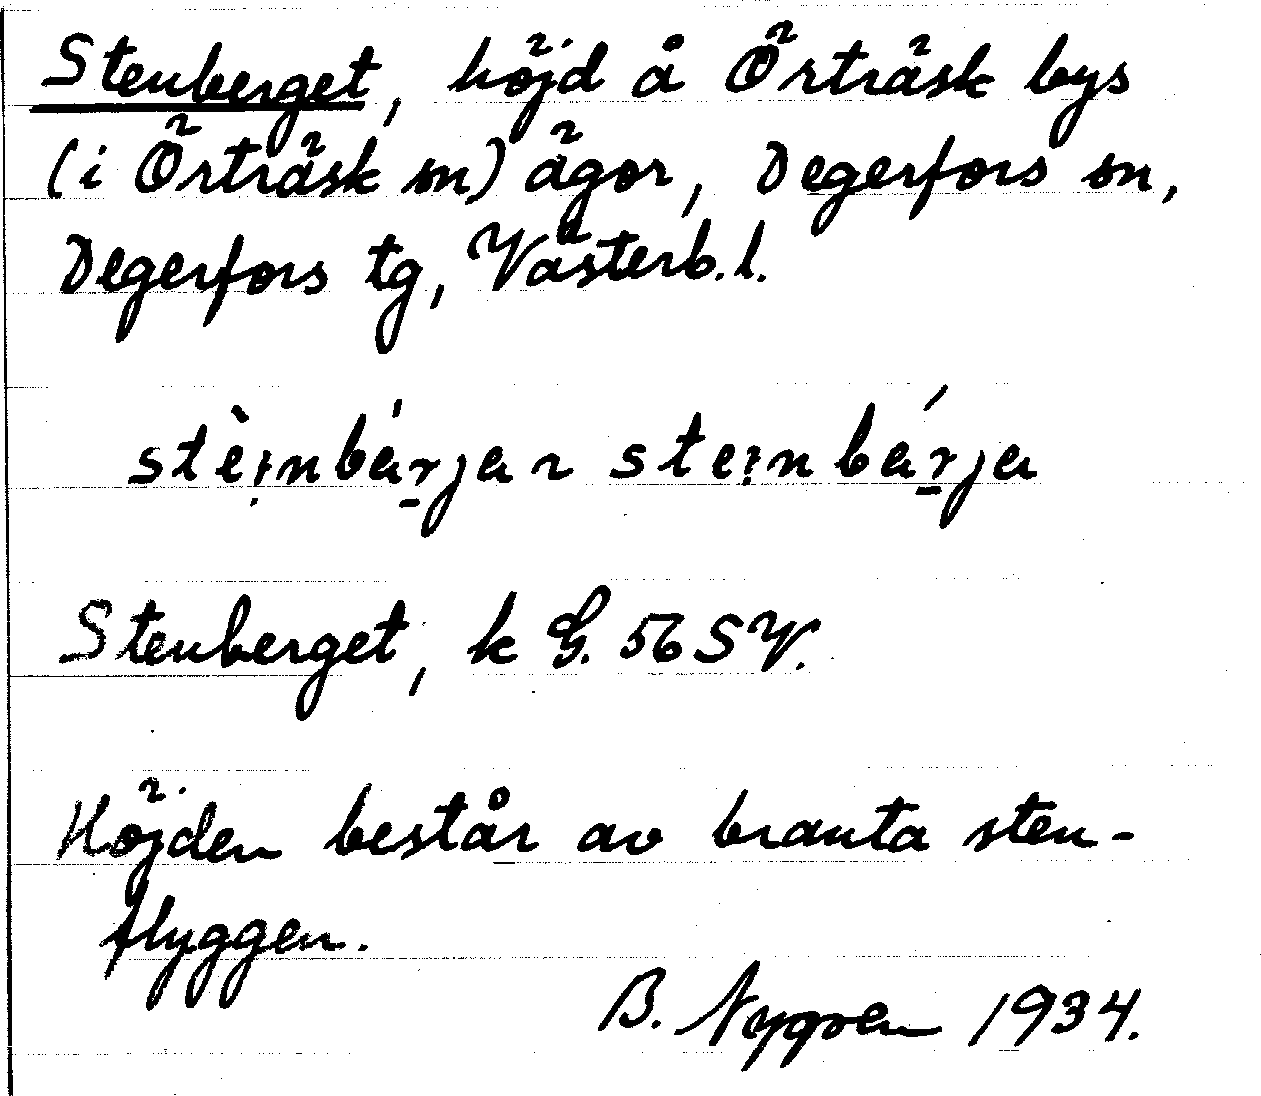 Stenberget, höjd å Örträsk bys
(i Örträsk sn) ägor, Degerfors sn,
Degerfors tg, Västerb. l.
stèi̩nbá̀r̠ja ~ stei̩nbár̠ja
Stenberget, k G. 56 SV.
Höjden består av branta sten-
flyggen.
B. Nygren 1934.